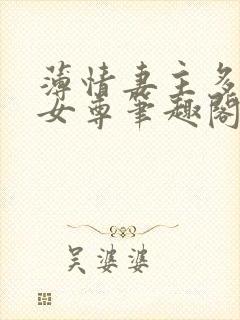 薄情妻主多
女尊笔趣阁
吴婆婆